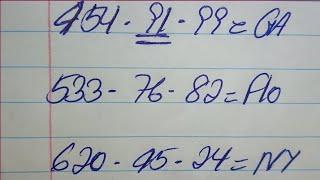 454-91-99=GA
533-76-82=Flo
620-45-24=NY